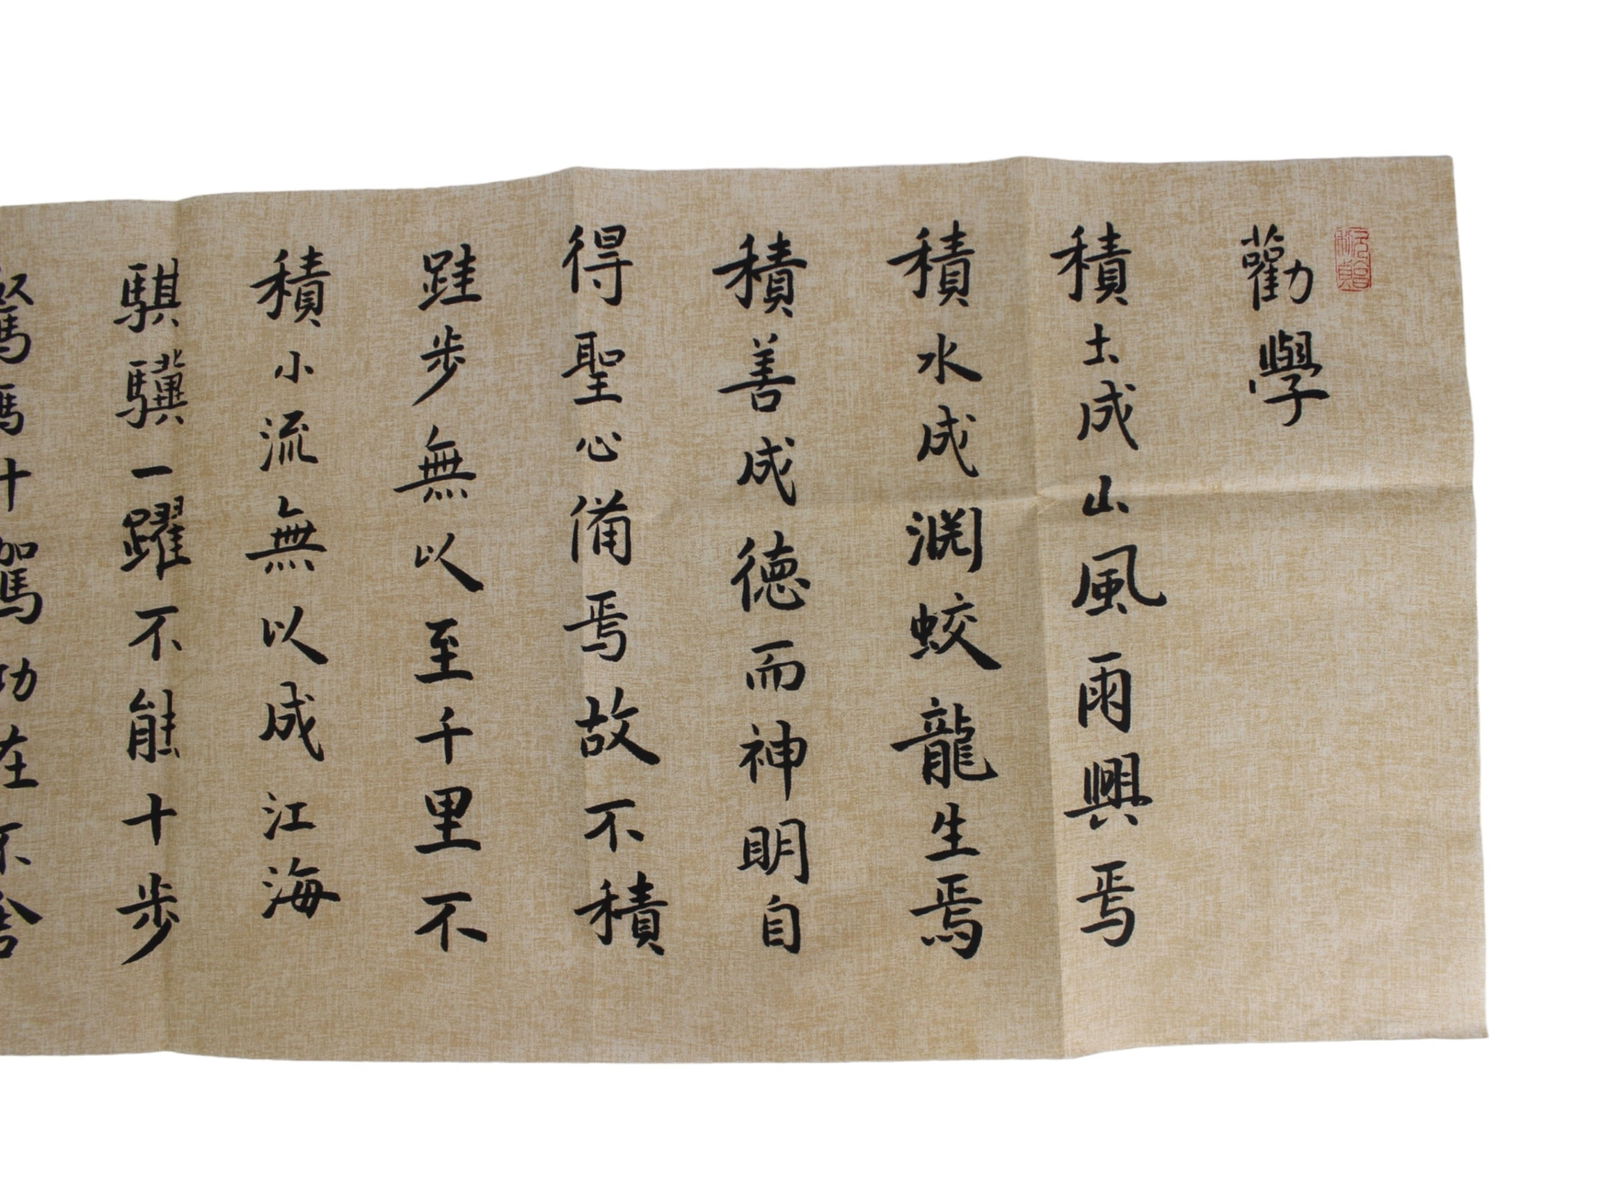 勸學
積土成山風雨興焉
積水成淵蛟龍生焉
積善成德而神明自
得聖心備焉故不積
跬步無以至千里不
積小流無以成江海
騏驥一躍不能十步
駑馬十駕功在不舍